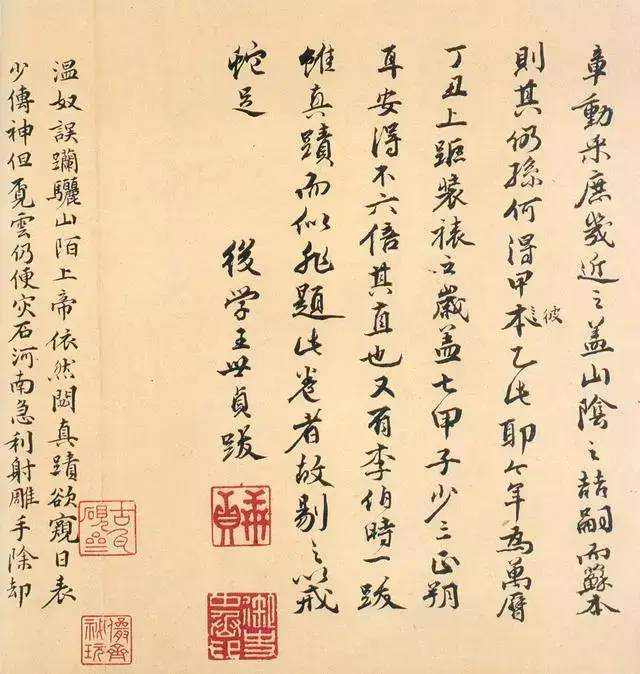 章動采庶幾近之蓋山陰之喆嗣而蘇本
則其仍孫何得甲本彼乙此耶今年為萬曆
丁丑上距裝裱之歲蓋七甲子少三正朔
耳安得不六倍其直也又有李伯時一跋
雖真蹟而似非題此卷者故剔之以戒
蛇足
後学王世貞跋
温奴誤躝驪山陌上帝依然閟真蹟欲窺日表
少傳神但覓雲仍便灾石河南急利射雕手除却